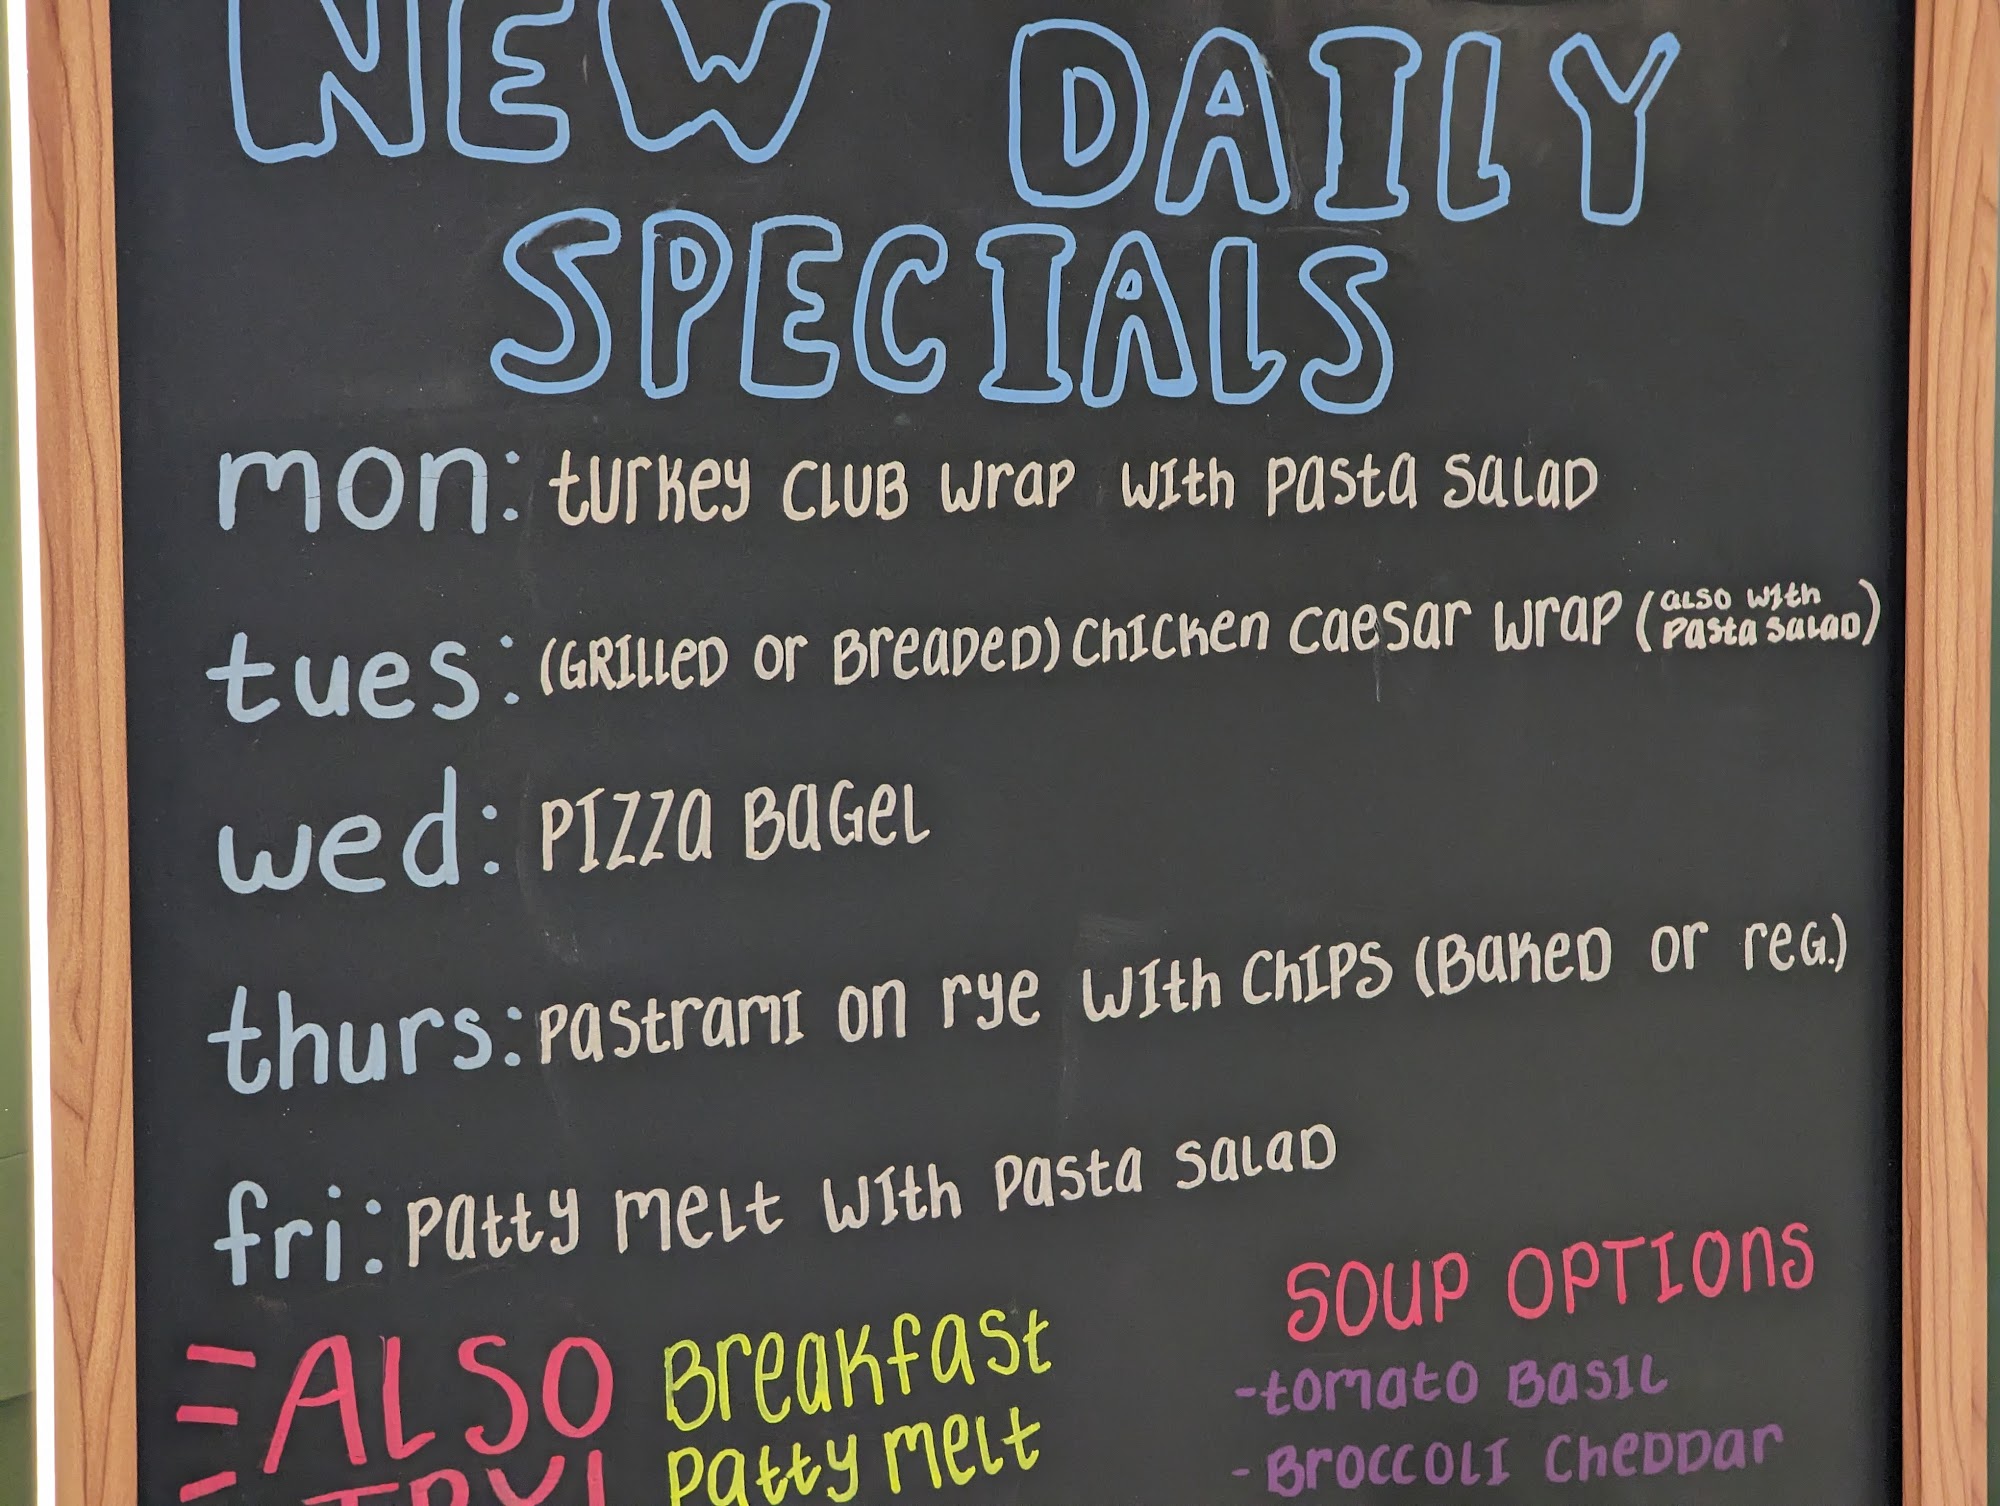 NEW DAILY
SPECIALS
mon: turkey CLUB wrap with pasta salad
tues: (GRILLED or BREADED) Chicken caesar wrap (also with
pasta salad)
wed: PIZZA BAGEL
thurs: pastrami on rye with CHIPS (BAKED or reg.)
fri: patty melt with pasta salad
SOUP OPTIONS
-tomato Basil
-Broccoli Cheddar
ALSO
TRY!
Breakfast
patty melt